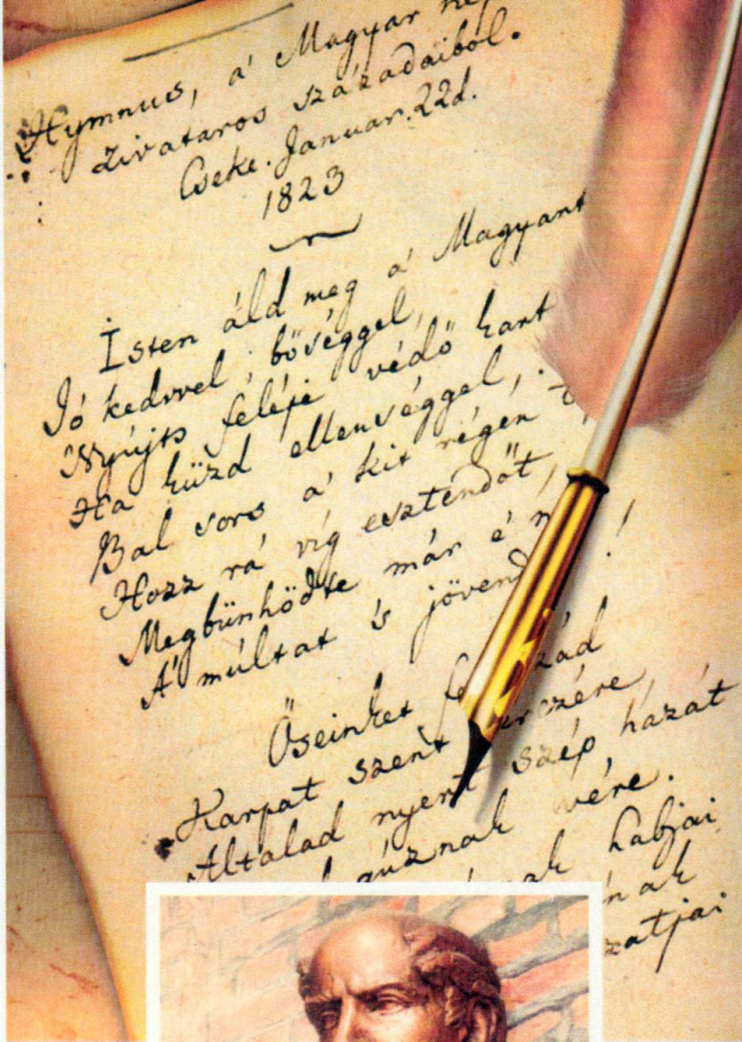 Hymnus, a' Magyar
zivataros századaiból.
Cseke. Januar. 22d.
1823
Isten áld meg a' Magyart
Jó kedvvel, bőséggel,
Nyújts feléje védő kart
Ha küzd ellenséggel,
Bal sors a' kit régen
Hozz rá víg esztendőt,
Megbünhödte már e'
A' múltat 's jövend !
Őseinket
Karpat szent
Altalad nyert szép hazát
vére.
habjai